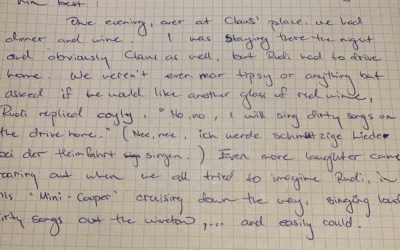 him best :
One evening, over at Claus' place, we had
dinner and wine. I was staying there the night
and obviously Claus as well, but Rudi had to drive
home. We weren't even near tipsy or anything but
asked if he would like another glass of red wine,
Rudi replied coyly, "No, no, I will sing dirty songs on
the drive home." (Nee, nee, ich werde schmutzige Lieder
bei der Heimfahrt singen.) Even more laughter came
oaring out when we all tried to imagine Rudi, in
his "Mini-Cooper" cruising down the way, singing loud
irty songs out the window,... and easily could.